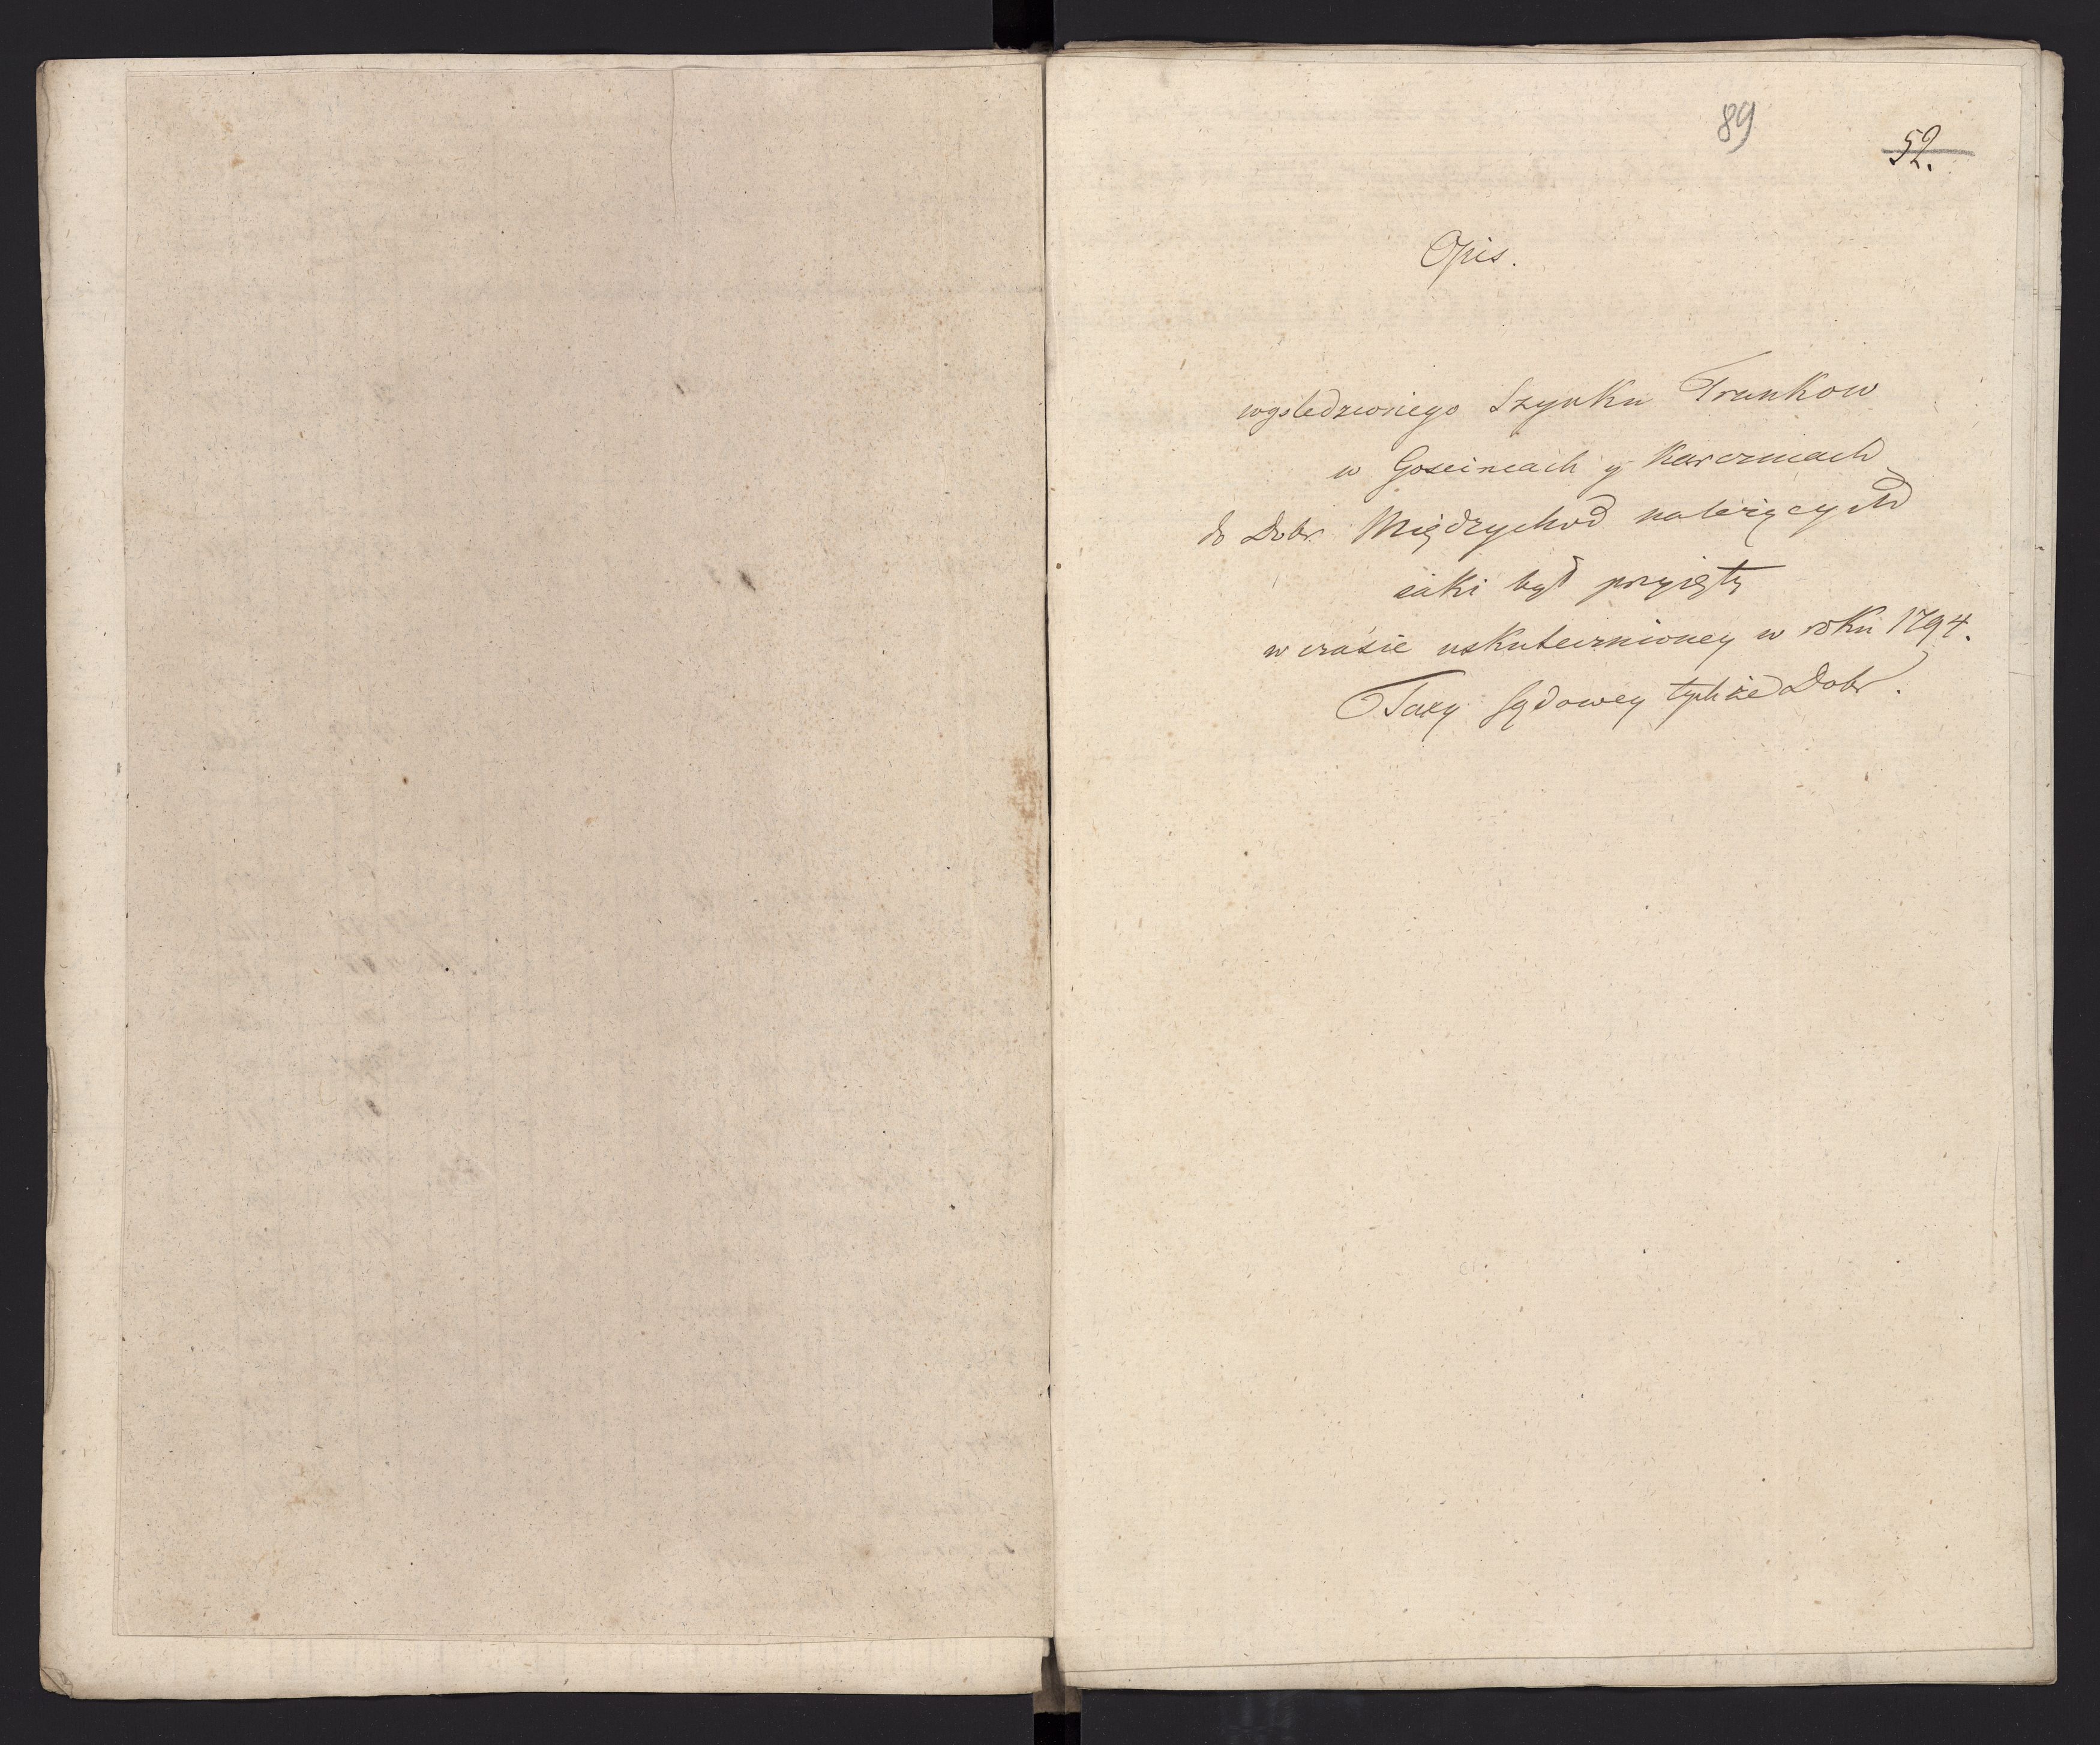 89
52.
Opis.
wysledzionego Szynku Trunkow
w Goscincach y Karczmach
do Dobr Międzychod należących
iaki był przyięty
w czasie uskutecznioney w roku 1794.
Taxy sądowey tychże Dobr.